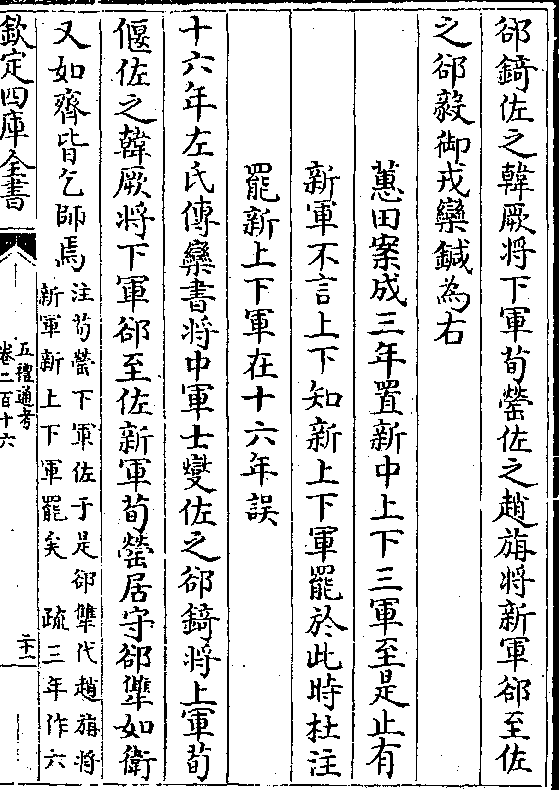 郤錡佐之韓厥将下軍荀罃佐之趙旃将新軍郤至佐
之郤毅御戎欒鍼為右
蕙田案成三年置新中上下三軍至是止有
新軍不言上下知新上下軍罷於此時杜注
罷新上下軍在十六年誤
十六年左氏傳欒書将中軍士燮佐之郤錡将上軍荀
偃佐之韓厥将下軍郤至佐新軍荀罃居守郤犨如衛
又如齊皆乞師焉
注荀罃下軍佐于是郤犨代趙旃将
新軍新上下軍罷矣 疏三年作六
欽定四庫全書
五禮通考
卷二百十六
二十二